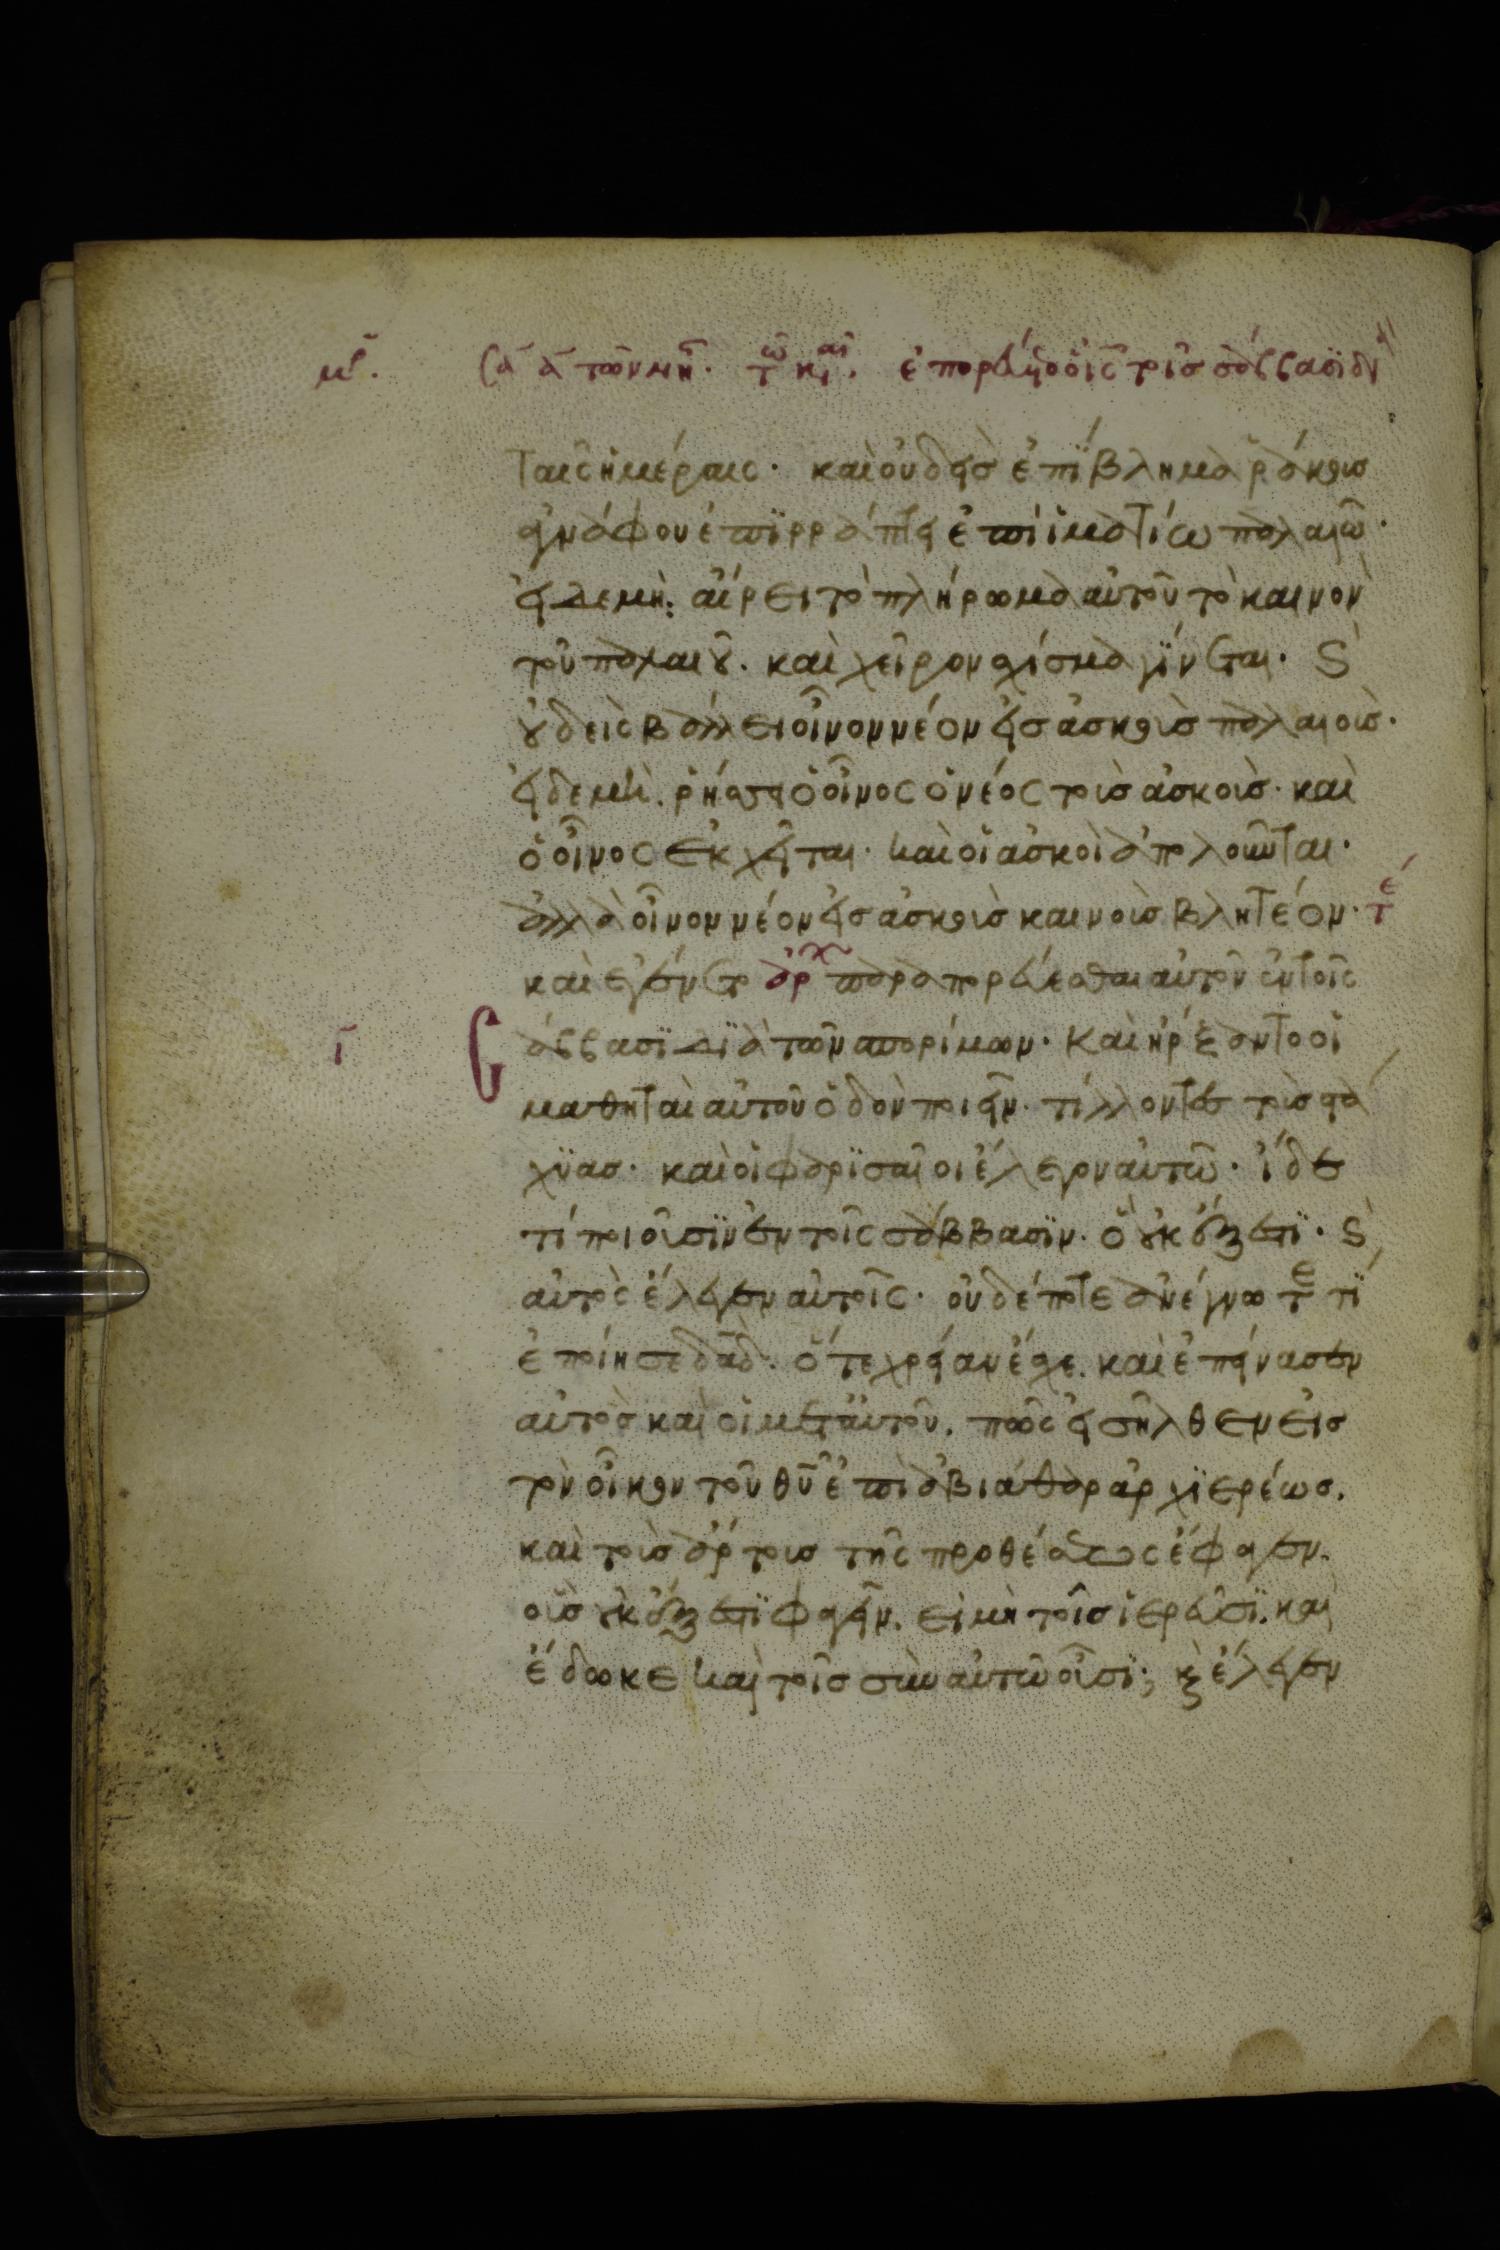 ταις ἡμέραις. καὶ οὐδεὶσ ἐπΐβλημα ῥάκουσ
ἀγνάφου ἐπϊρράπτει ἐπὶ ἱματίω παλαιῶ.
εἰ δε μὴ. αἴρει τὸ πλήρωμα αὐτοῦ τὸ καινὸν
τοῦ παλαιοῦ. καὶ χεῖρον σχίσμα γΐνεται. καὶ
οὐδεὶς βάλλει οἶνον νέον εἰσ ἀσκοὺσ παλαιούσ.
εἰ δε μὴ. ῥήσσει ὁ οἶνος ὁ νέος τοὺσ ἀσκούσ. καὶ
ὁ οἶνος ἐκχεῖται. καὶ οἱ ἀσκοὶ ἀπολοῦνται.
ἀλλὰ οἶνον νέον εἰσ ἀσκοὺσ καινοὺσ βλητέον. τε
καὶ ἐγένετο ἀρχ παραπορεύεσθαι αὐτὸν ἐν τοῖς
Γ σάββασϊ δϊὰ τῶν σπορίμων. καὶ ἤρξαντο οἱ
μαθηταὶ αὐτοῦ ὁδὸν ποιεῖν. τίλλοντεσ τοὺσ στά
χϋασ. καὶ οἱ φαρϊσαῖοι ἔλεγον αὐτῶ. ἴδε
τί ποιοῦσϊν ἐν τοῖς σάββασϊν. ὃ οὐκ ἔξεστϊ. καὶ
αὐτὸς ἔλεγεν αὐτοῖς. οὐδέποτε ἀνέγνωτε τΐ
ἐποίησε δαδ. ὅτε χρείαν ἔσχε. καὶ ἐπείνασεν
αὐτὸσ καὶ οἱ μετ' αὐτοῦ. πῶς εἰσῆλθεν εἰσ
τὸν οἶκον τοῦ θυ ἐπὶ ἀβιάθαρ ἀρχϊερέωσ.
καὶ τοὺσ ἄρτουσ τῆς προθέσεως ἔφαγεν.
οὓσ οὐκ ἔξεστϊ φαγεῖν. εἰ μὴ τοῖσ ἱερεῦσϊ. καὶ
ἔδωκε καὶ τοῖσ σὺν αὐτῶ οὖσϊ; καὶ ἔλεγεν